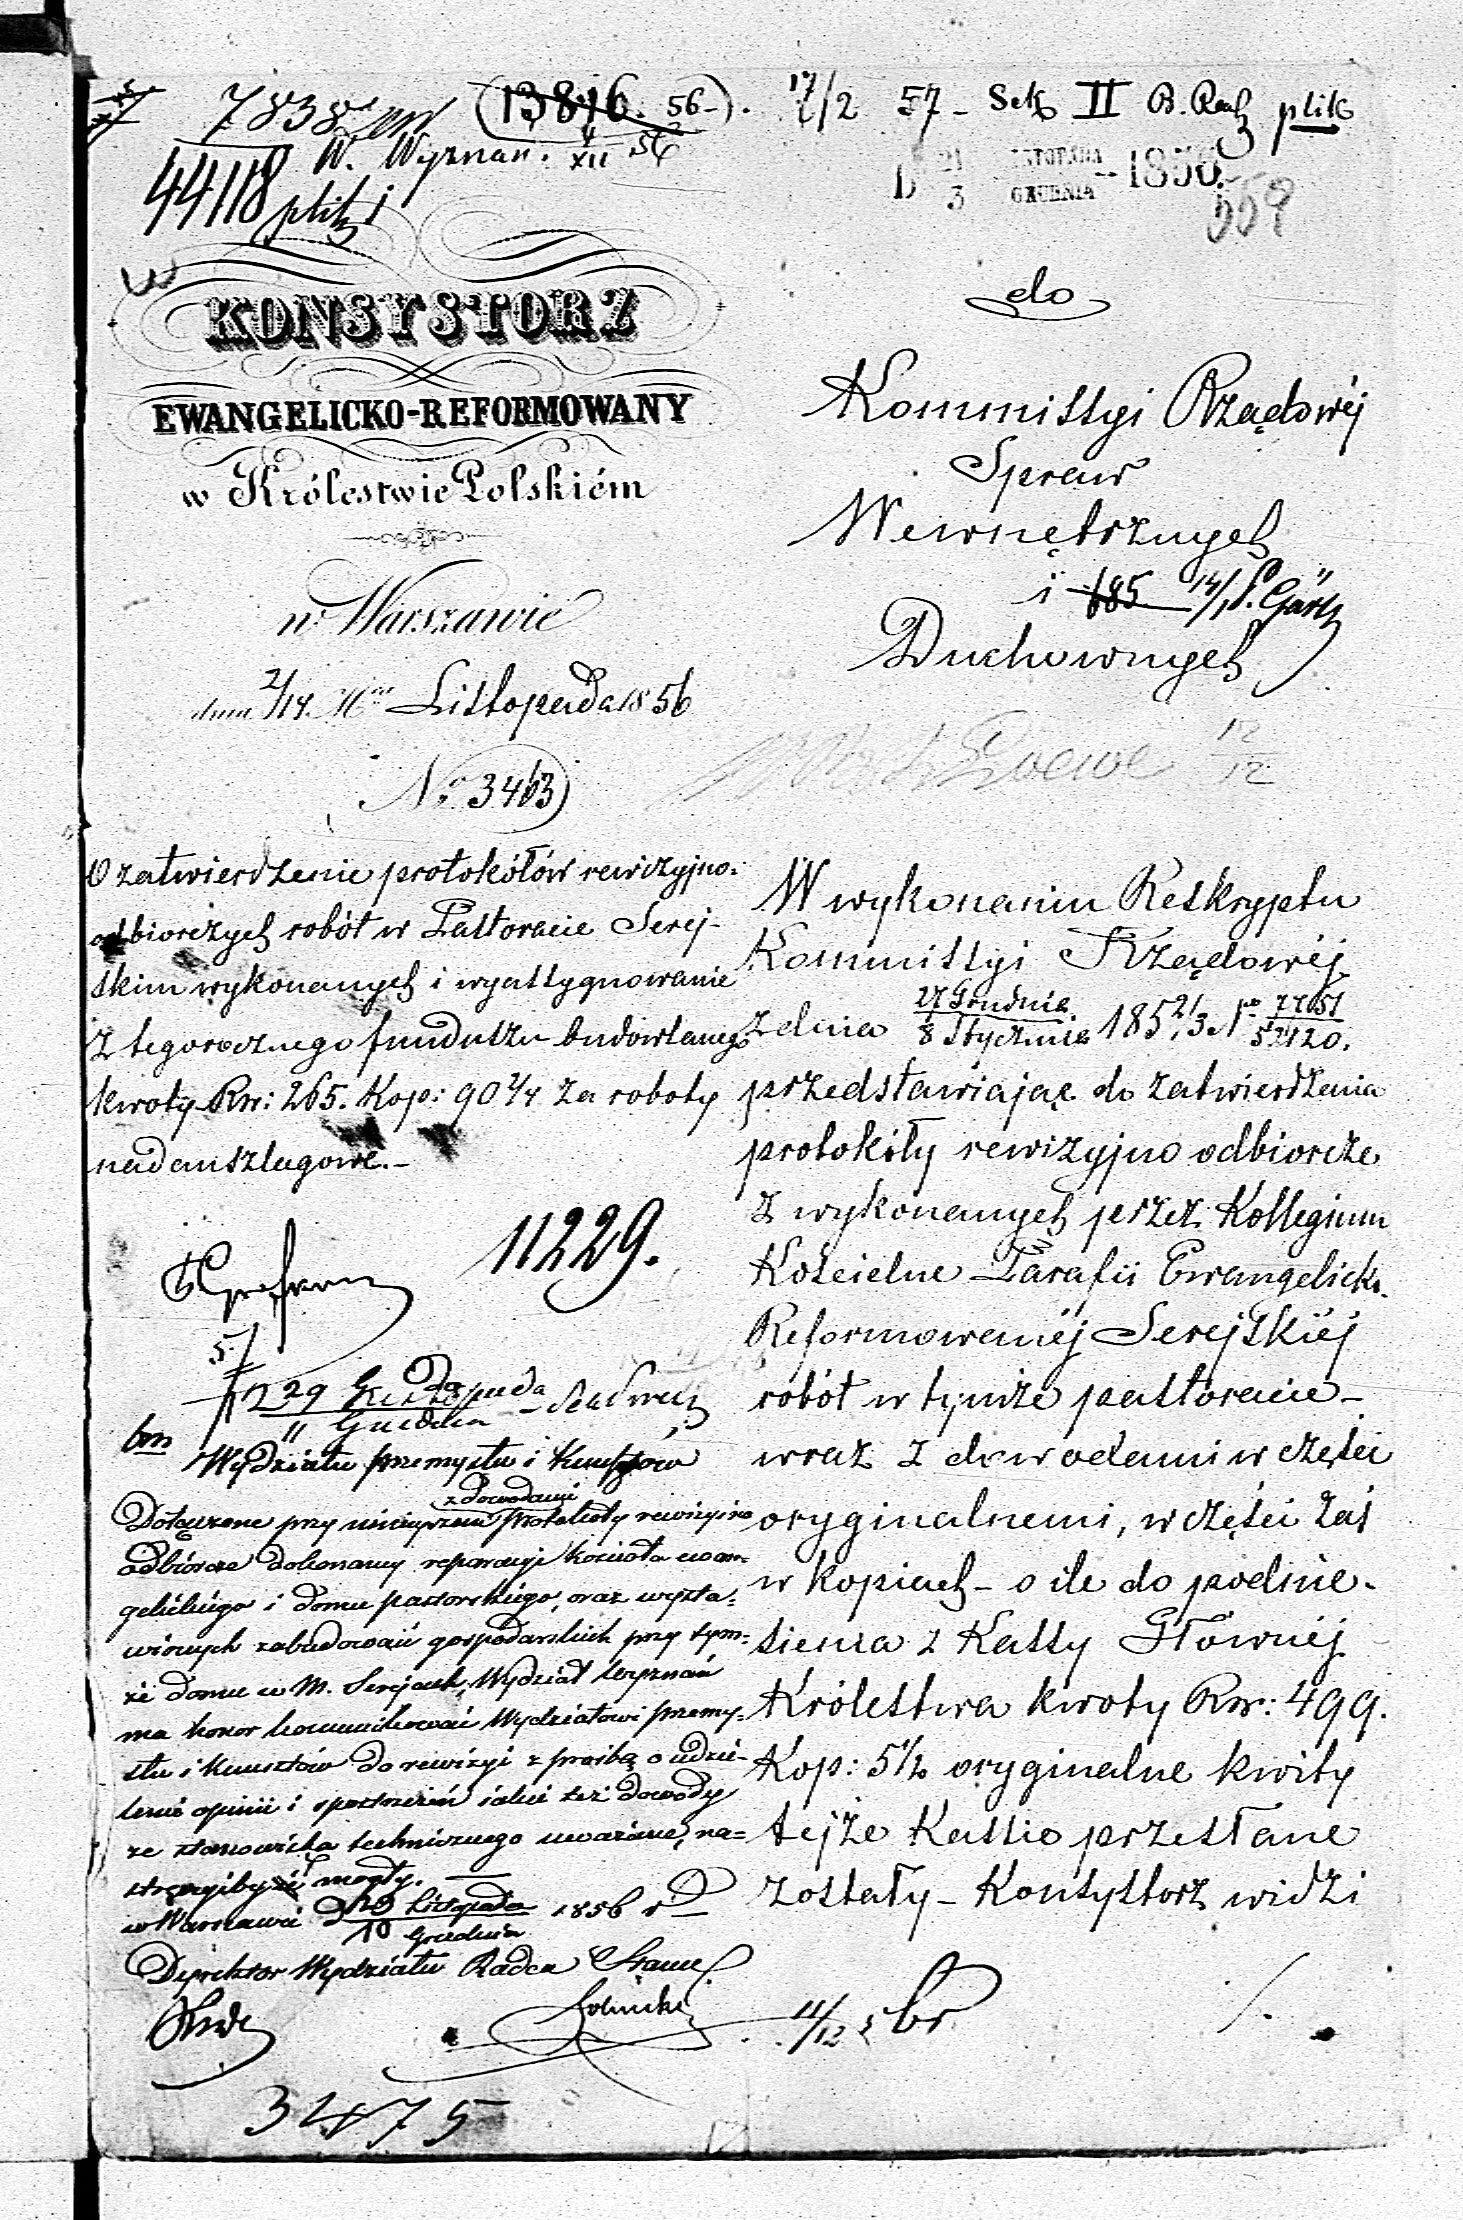 7838
(13816. 56-).
17/2 57 - Sek II B. Rach plik
W. Wyznan. 4/XII 56
44118 plik 1
D 21 LISTOPADA
3 GRUDNIA - 1856.
559
KONSYSTORZ
EWANGELICKO-REFORMOWANY
w Królestwie Polskiém
w Warszawie
dnia 2/14 Mca Listopada 1856
No 3463
do
Kommissyi Rządowéj
Spraw
Wewnętrznych
i 685 14/1
Duchownych
12/12
O zatwierdzenie protokółów rewizyjno-
odbiorczych robót w Pastoracie Serej-
skim wykonanych i wyassygnowanie
z tegorocznego funduszu budowlanego
kwoty Rsr: 265. Kop: 90 1/4 za roboty
nadanszlagowe.-
11229.
5/
29 Listopada
11 Grudnia
Wydziału przemysłu i kunsztów
z dowodami
Dołączone przy niniejszem protokoły rewizyjno
odbiórcze dokonanej reparacyi kościoła ewan-
gelickiego i domu pastorskiego, oraz wysta-
wionych zabudowań gospodarskich przy tym-
że domu w M. Serejach, Wydział Wyznań
ma honor kommunikować Wydziałowi przemy-
słu i kunsztów do rewizyi z prośbą o udzie-
lenie opinii i spostrzeżeń jakie też dowody
ze stanowiska technicznego uważane, na-
stręczyćby mogły. -
w Warszawie d. 28 Listopada
10 Grudnia 1856 r
Dyrektor Wydziału Radca Stanu
11/12
32475
W wykonaniu Reskryptu
Kommissyi Rządowéj
z dnia 27 Grudnia
8 Stycznia 1852/3 No 77051
52120.
przedstawiając do zatwierdzenia
protokóły rewizyjno odbiorcze
z wykonanych przez Kollegium
Kościelne Parafii Ewangelicko.
Reformowanéj Serejskiéj
robót w tymże pastoracie -
wraz z dowodami w części
oryginalnemi, w części zaś
w kopiach - o ile do podnie-
sienia z Kassy Głównéj
Królestwa kwoty Rsr: 499.
Kop: 5 1/2 oryginalne kwity
tejże Kassie przesłane
zostały - Konsystorz widzi